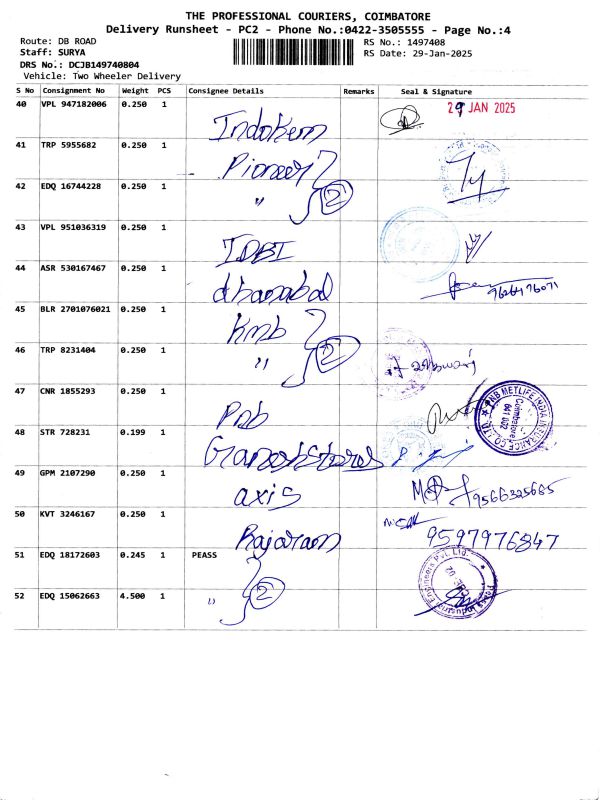 THE PROFESSIONAL COURIERS, COIMBATORE
Delivery Runsheet - PC2 - Phone No.:0422-3505555 - Page No.:4
Route: DB ROAD RS No.: 1497408
Staff: SURYA RS Date: 29-Jan-2025
DRS No.: DCJB149740804
Vehicle: Two Wheeler Delivery
S No Consignment No Weight PCS Consignee Details Remarks Seal & Signature
40 VPL 947182006 0.250 1 Indokem 29 JAN 2025
41 TRP 5955682 0.250 1 Pioneer
42 EDQ 16744228 0.250 1 " 2
43 VPL 951036319 0.250 1 IDBI
44 ASR 530167467 0.250 1 dhanabal 9626476071
45 BLR 2701076021 0.250 1 Kmb
46 TRP 8231404 0.250 1 " 2
47 CNR 1855293 0.250 1 Pnb PNB METLIFE INDIA INSURANCE CO. LTD. Coimbatore 641 002
48 STR 728231 0.199 1 Ganesh Stores
49 GPM 2107290 0.250 1 axis 9566325685
50 KVT 3246167 0.250 1 Rajaram 9597976847
51 EDQ 18172603 0.245 1 PEASS Peass Industrial Engineers Pvt. Ltd.
52 EDQ 15062663 4.500 1 " 2